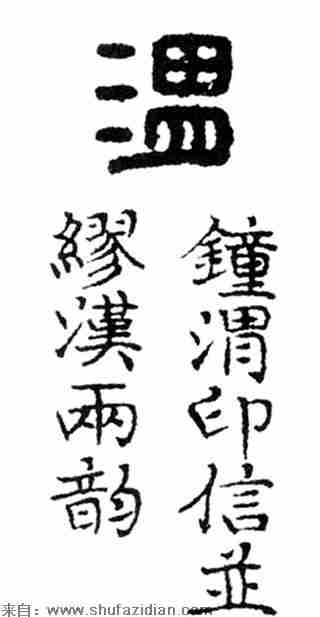 温
鐘渭印信並
繆漢兩韵
来自：www.shufazidian.com